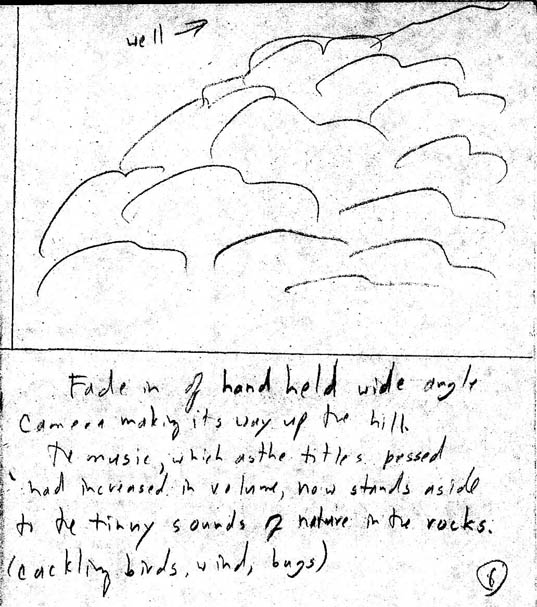 well →
Fade in of hand held wide angle
Camera making its way up the hill.
The music, which as the titles passed
had increased in volume, now stands aside
to the tinny sounds of nature in the rocks.
(cackling birds, wind, bugs)
6